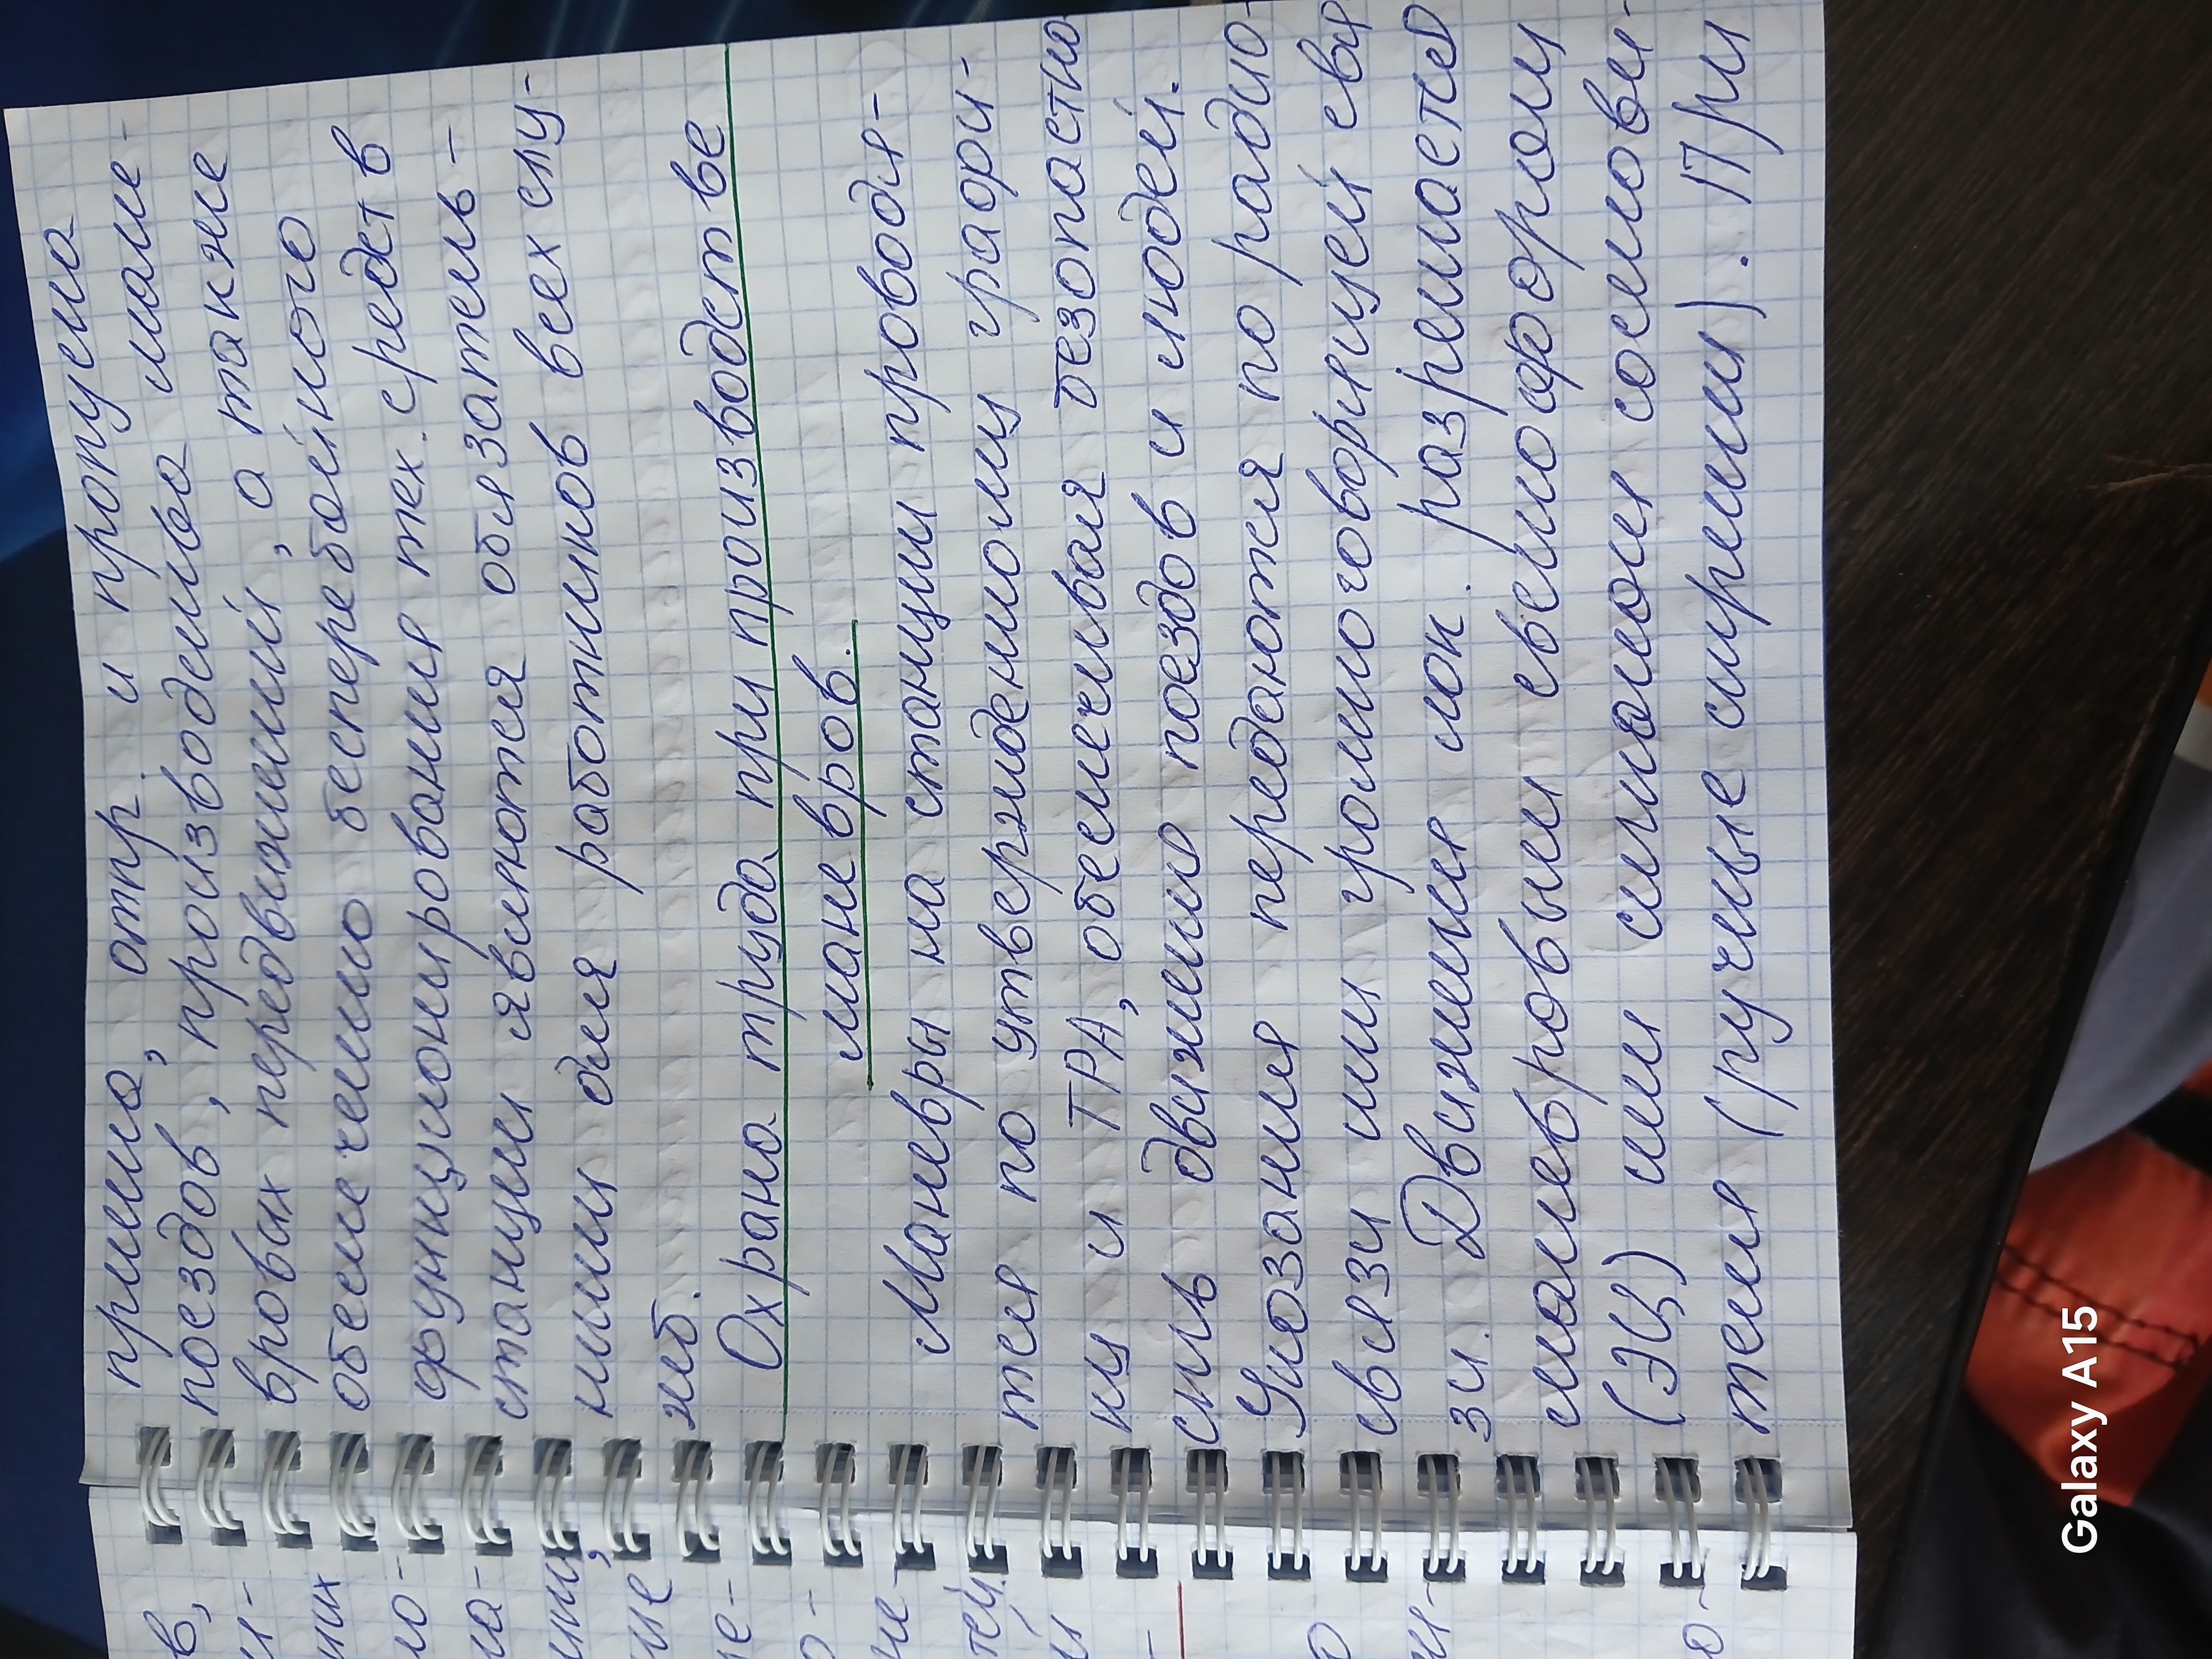 приема, отпр. и пропуска
поездов, производства мане-
вровых передвижений, а также
обеспечению бесперебойного
функционирования тех. средств
станции являются обязатель-
ными для работников всех слу-
жб.
Охрана труда при производстве
маневров.
Маневры на станции проводя-
тся по утвержденному графи-
ку и ТРА, обеспечивая безопасно
сть движения поездов и людей.
Указания передаются по радио-
связи или громкоговорящей свя
зи. Движения лок. разрешается
маневровым светофором
(ЭЦ) или сигналами составите-
теля (ручные сигналы). При
в,
и-
них
ло-
ла-
ние
че-
о-
не-
тей
й
-
о
и-
о-
Galaxy A15